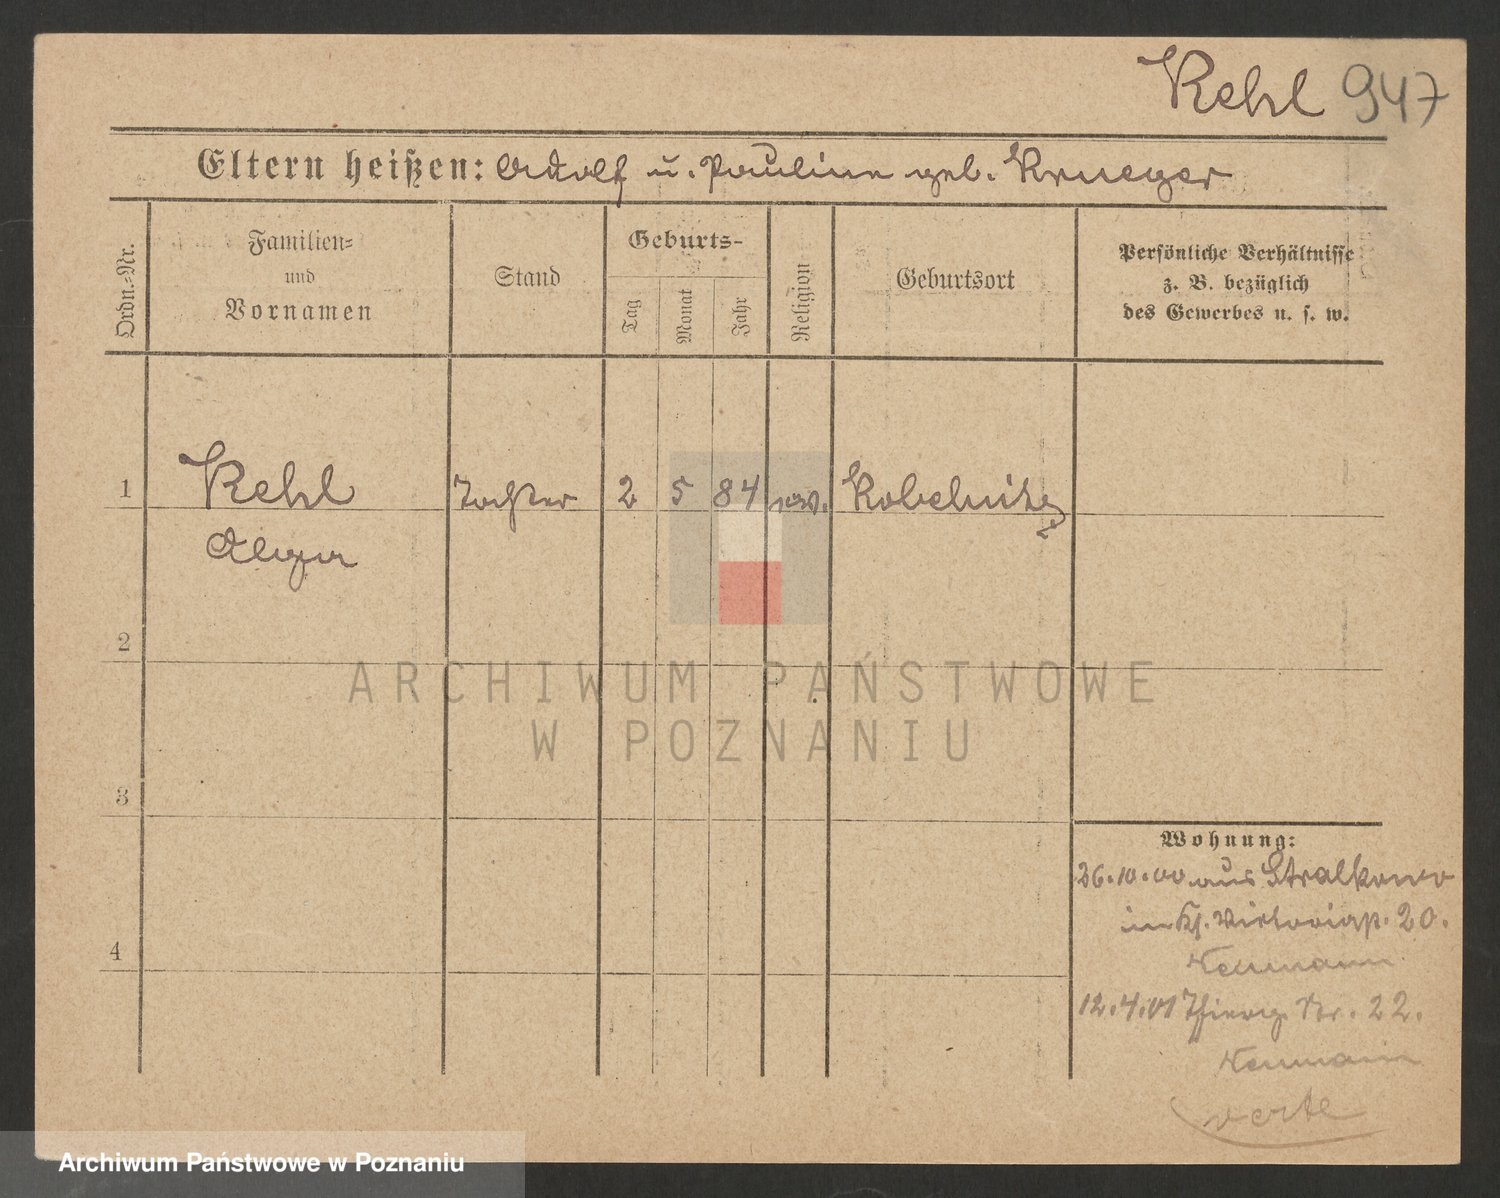 Kehl 947
Eltern heißen: Adolf u. Pauline geb. Krueger
Ordn.-Nr.
Familien-
und
Vornamen
Stand
Geburts-
Tag
Monat
Jahr
Religion
Geburtsort
Persönliche Verhältnisse
z. B. bezüglich
des Gewerbes u. s. w.
1 Kehl Tochter 2 5 84 ev. Kobelnitz
2
3
4
Wohnung:
26.10.00 aus Stralkowo
in Kl. 20.
Neumann
12.4.01 Thierg. Str. 22.
Neumann
verte
ARCHIWUM PAŃSTWOWE
W POZNANIU
Archiwum Państwowe w Poznaniu